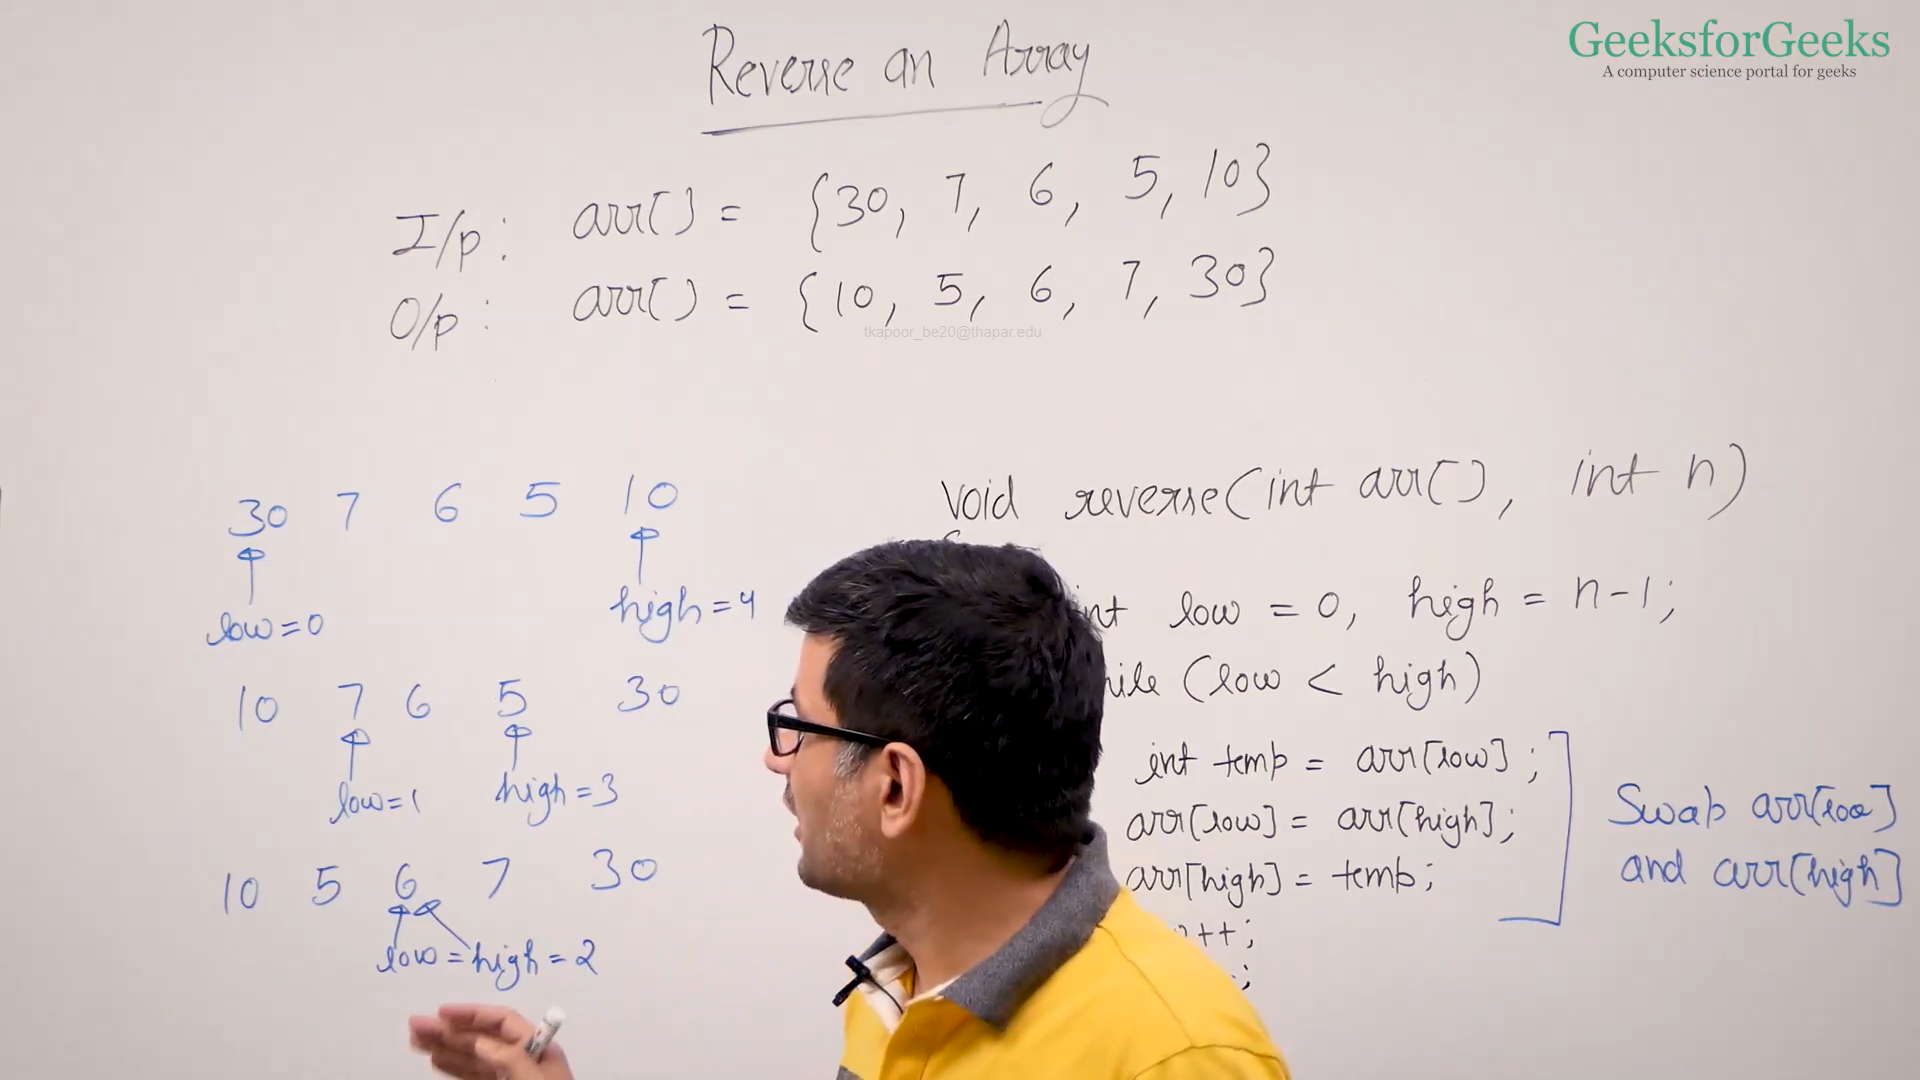 GeeksforGeeks
A computer science portal for geeks
Reverse an Array
I/p: arr[] = {30, 7, 6, 5, 10}
O/p: arr[] = {10, 5, 6, 7, 30}
tkapoor_be20@thapar.edu
30 7 6 5 10
low=0
high=4
10 7 6 5 30
low=1
high=3
10 5 6 7 30
low=high=2
void reverse(int arr[], int n)
int low = 0, high = n-1;
(low < high)
int temp = arr[low];
arr[low] = arr[high];
arr[high] = temp;
++;
;
Swap arr[low]
and arr[high]